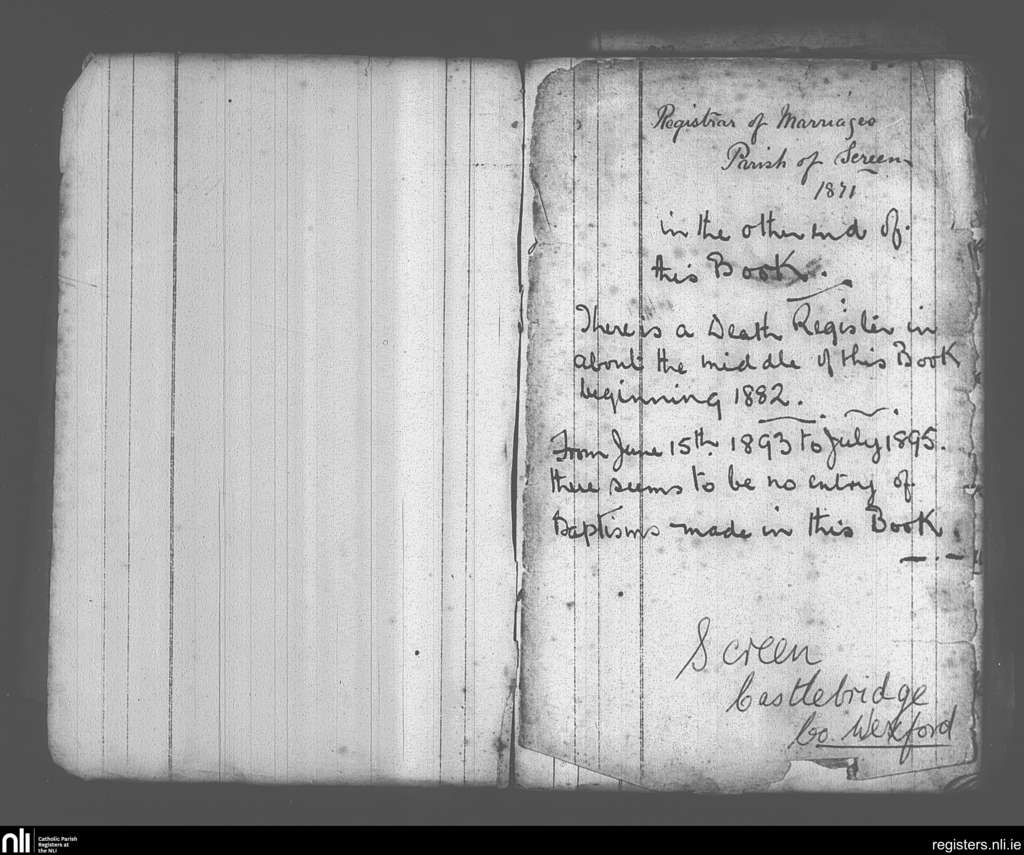 Registrar of Marriages
Parish of Screen
1871
in the other end of
this Book.
There is a Death Register in
about the middle of this Book
beginning 1882.
From June 15th. 1893 to July 1895.
there seems to be no entry of
Baptisms made in this Book.
Screen
Castlebridge
Co. Wexford
nli
Catholic Parish
Registers at
the NLI
registers.nli.ie